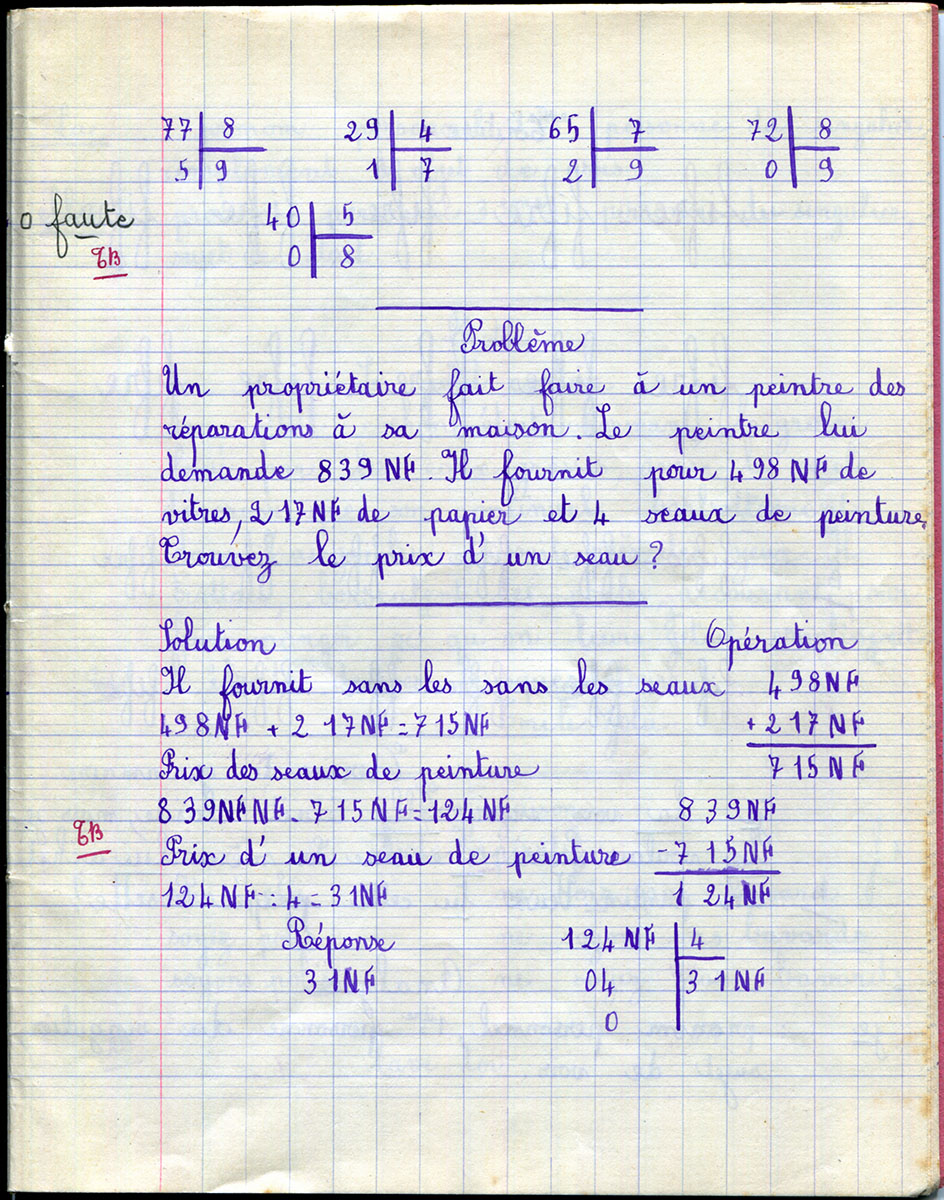 77 8 29 4 65 7 72 8
5 9 1 7 2 9 0 9
0 faute 40 5
TB 0 8
Problème
Un propriétaire fait faire à un peintre des
réparations à sa maison. Le peintre lui
demande 839 NF. Il fournit pour 498 NF de
vitres, 217 NF de papier et 4 seaux de peinture.
Trouvez le prix d'un seau ?
Solution Opération
Il fournit sans les sans les seaux 498 NF
498 NF + 217 NF = 715 NF + 217 NF
Prix des seaux de peinture 715 NF
839 NFNF - 715 NF = 124 NF 839 NF
TB Prix d'un seau de peinture - 715 NF
124 NF : 4 = 31 NF 124 NF
Réponse 124 NF 4
31 NF 04 31 NF
0